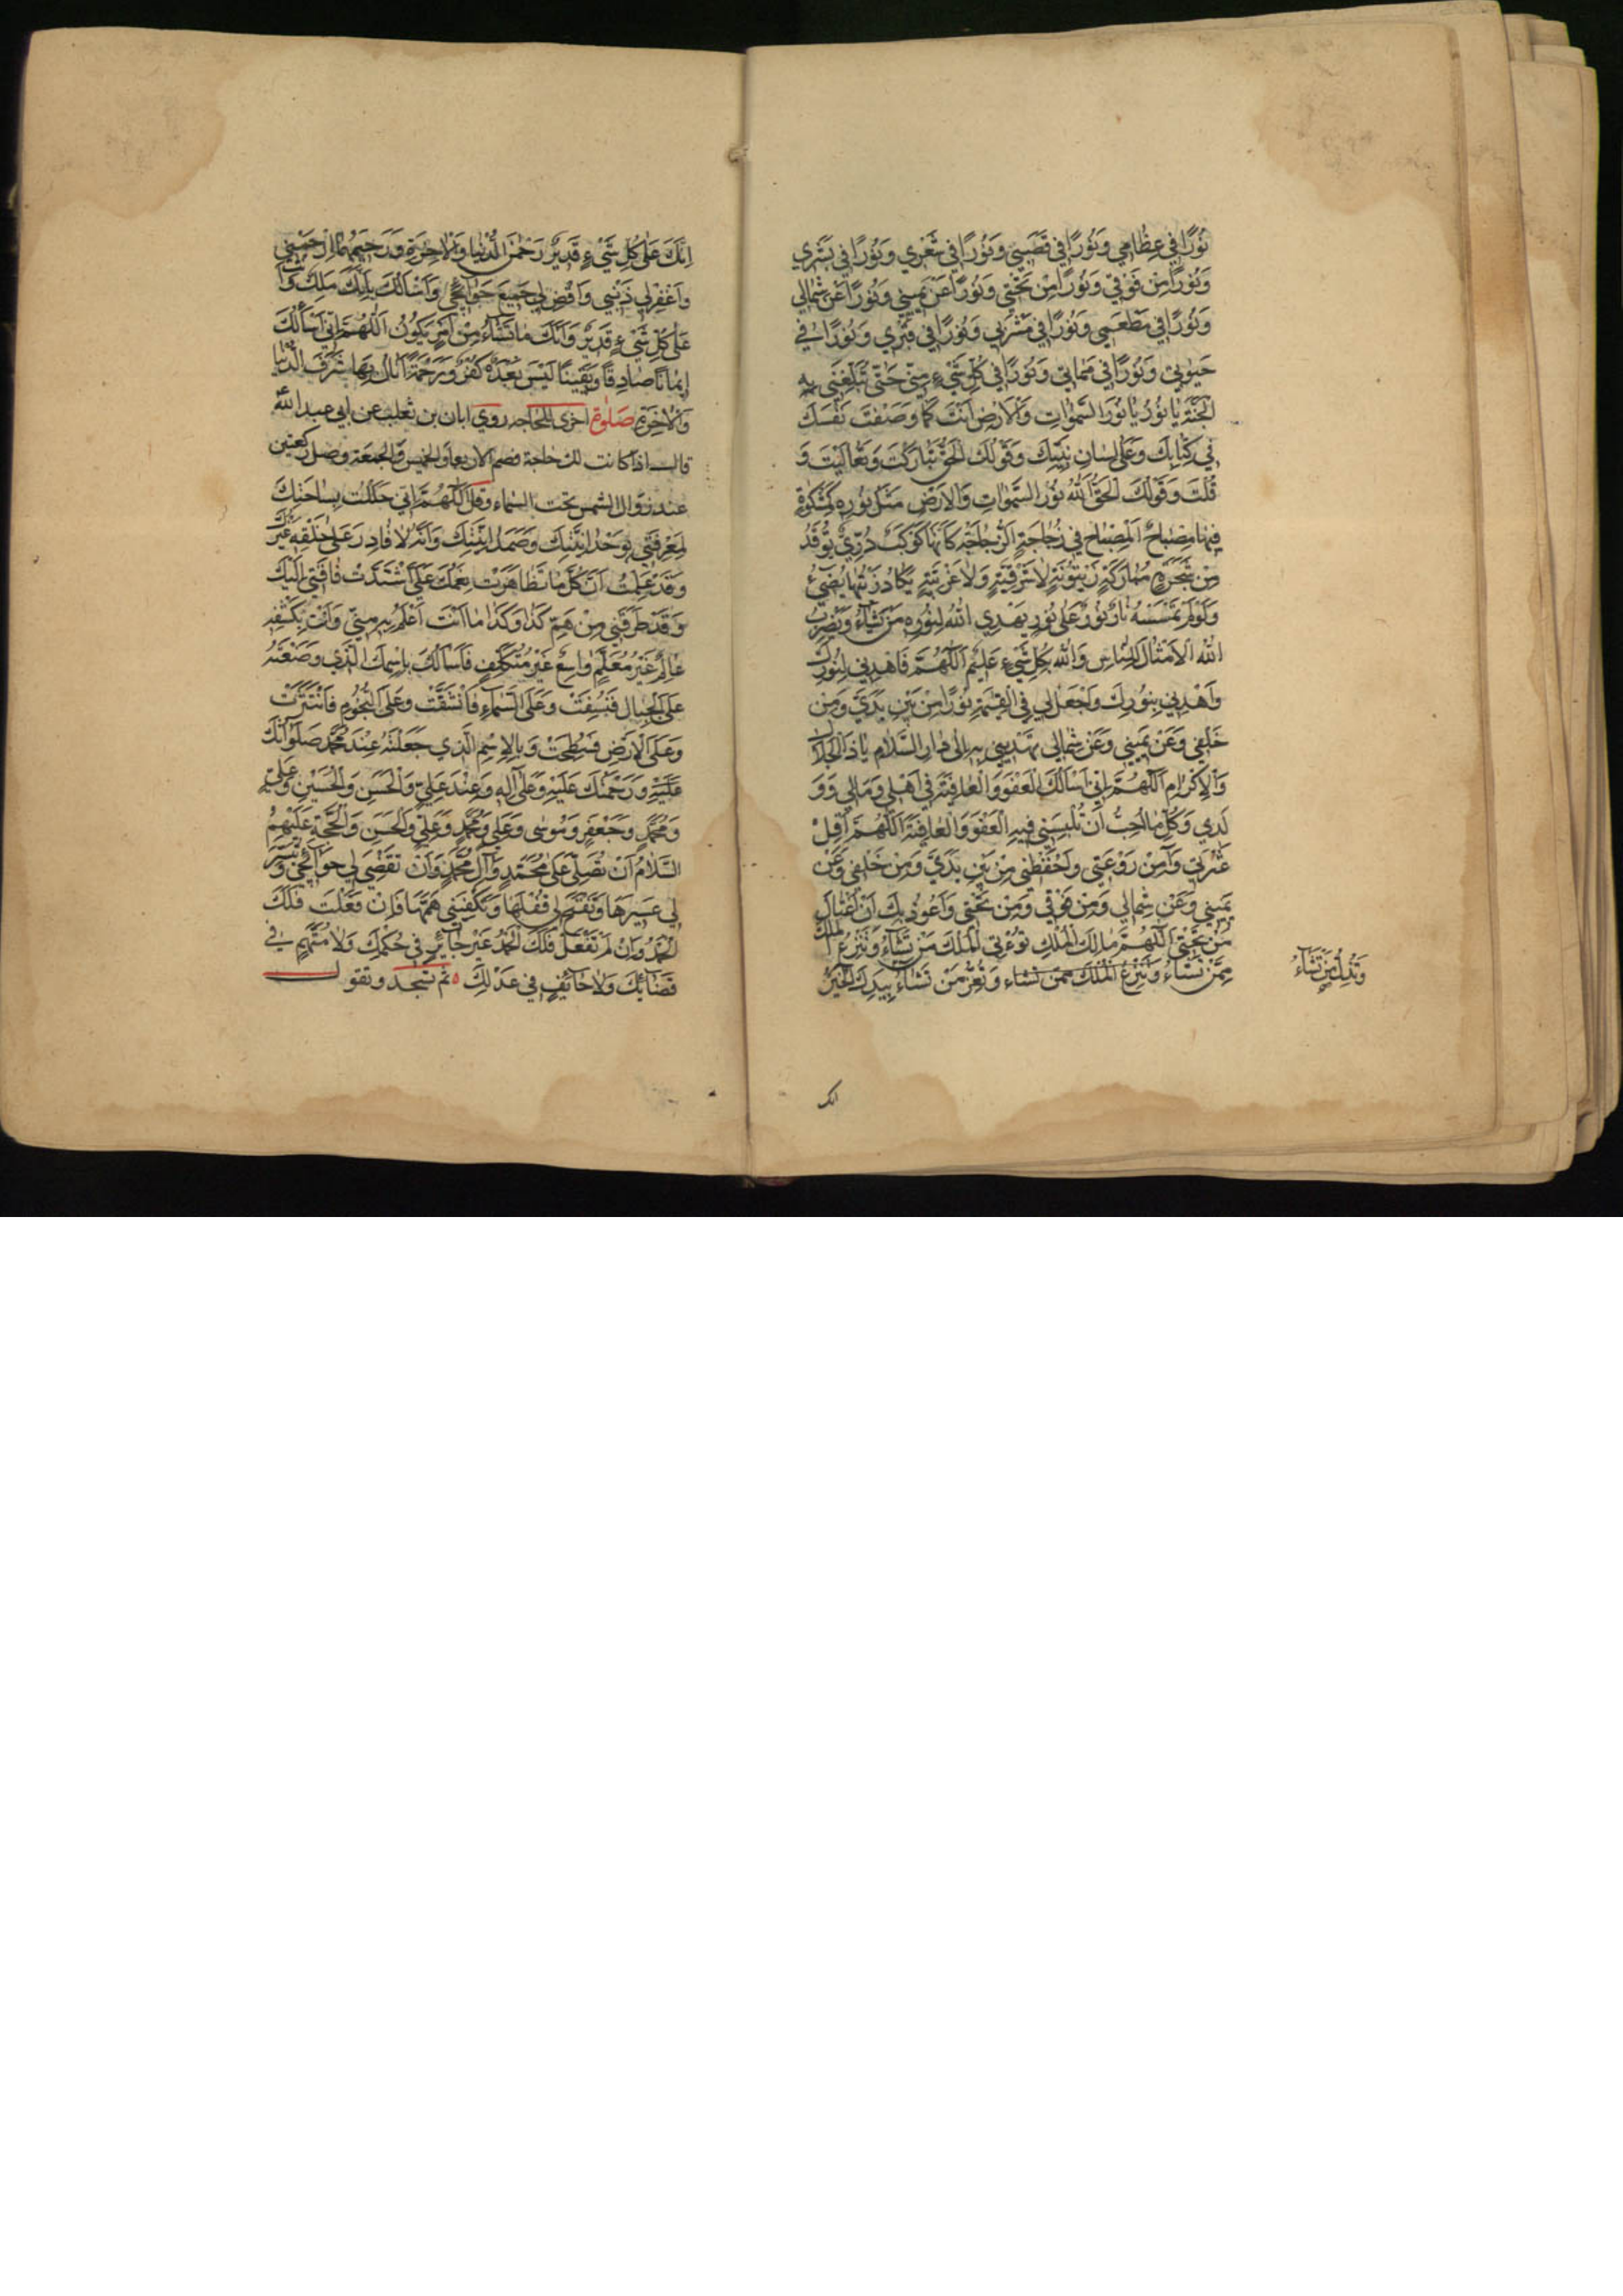 نُورًا في عِظامي وَنُورًا في قَصَبي وَنُورًا في شَعْري وَنُورًا في بَشَري
وَنُورًا مِنْ فَوْقي وَنُورًا مِنْ تَحْتي وَنُورًا عَنْ يَميني وَنُورًا عَنْ شِمالي
وَنُورًا في مَطْعَمي وَنُورًا في مَشْرَبي وَنُورًا في قَبْري وَنُورًا في
حَيوتي وَنُورًا في مَماتي وَنُورًا في كُلِّ شَيْءٍ مِنّي حَتّى تُبَلِّغَني بِهِ
الْجَنَّةَ يا نُورُ يا نُورَ السَّمواتِ وَالْأَرْضِ أَنْتَ كَما وَصَفْتَ نَفْسَكَ
في كِتابِكَ وَعَلى لِسانِ نَبِيِّكَ وَقَوْلُكَ الْحَقُّ تَبارَكْتَ وَتَعالَيْتَ وَ
قُلْتَ وَقَوْلُكَ الْحَقُّ اللهُ نُورُ السَّمواتِ وَالْأَرْضِ مَثَلُ نُورِهِ كَمِشْكوةٍ
فيها مِصْباحٌ الْمِصْباحُ في زُجاجَةٍ الزُّجاجَةُ كَأَنَّها كَوْكَبٌ دُرِّيٌّ يُوقَدُ
مِنْ شَجَرَةٍ مُبارَكَةٍ زَيْتُونَةٍ لا شَرْقِيَّةٍ وَلا غَرْبِيَّةٍ يَكادُ زَيْتُها يُضيءُ
وَلَوْ لَمْ تَمْسَسْهُ نارٌ نُورٌ عَلى نُورٍ يَهْدِي اللهُ لِنُورِهِ مَنْ يَشاءُ وَيَضْرِبُ
اللهُ الْأَمْثالَ لِلنّاسِ وَاللهُ بِكُلِّ شَيْءٍ عَليمٌ اللّهُمَّ فَاهْدِني لِنُورِكَ
وَاهْدِني بِنُورِكَ وَاجْعَلْ لي في الْقِيمَةِ نُورًا مِنْ بَيْنِ يَدَيَّ وَمِنْ
خَلْفي وَعَنْ يَميني وَعَنْ شِمالي تَهْديني بِهِ إِلى دارِ السَّلامِ يا ذَا الْجَلالِ
وَالْإِكْرامِ اللّهُمَّ إِنّي أَسْأَلُكَ الْعَفْوَ وَالْعافِيَةَ في أَهْلي وَمالي وَوَ
لَدي وَكُلِّ ما أُحِبُّ أَنْ تُلْبِسَني فيهِ الْعَفْوَ وَالْعافِيَةَ اللّهُمَّ أَقِلْ
عَثْرَتي وَآمِنْ رَوْعَتي وَاحْفَظْني مِنْ بَيْنِ يَدَيَّ وَمِنْ خَلْفي وَعَنْ
يَميني وَعَنْ شِمالي وَمِنْ فَوْقي وَمِنْ تَحْتي وَأَعُوذُ بِكَ أَنْ أُغْتالَ
مِنْ تَحْتي اللّهُمَّ مالِكَ الْمُلْكِ تُؤْتِي الْمُلْكَ مَنْ تَشاءُ وَتَنْزِعُ الْمُلْكَ
مِمَّنْ تَشاءُ وَتَنْزِعُ الْمُلْكَ مِمَّنْ تَشاء وَتُعِزُّ مَنْ تَشاءُ بِيَدِكَ الْخَيْرُ
وَتُذِلُّ مَنْ تَشاءُ
انك
إِنَّكَ عَلى كُلِّ شَيْءٍ قَديرٌ رَحْمنَ الدُّنْيا وَالْآخِرَةِ وَرَحيمَهُما ارْحَمْني
وَاغْفِرْ لي ذَنْبي وَاقْضِ لي جَميعَ حَوائِجي وَأَسْأَلُكَ بِأَنَّكَ مَلِكٌ وَأَنَّكَ
عَلى كُلِّ شَيْءٍ قَديرٌ وَأَنَّكَ ما تَشاءُ مِنْ أَمْرٍ يَكُونُ اللّهُمَّ إِنّي أَسْأَلُكَ
إيمانًا صادِقًا وَيَقينًا لَيْسَ بَعْدَهُ كُفْرٌ وَرَحْمَةً أَنالُ بِها شَرَفَ الدُّنْيا
وَالْآخِرَةِ صَلوة اخرى للحاجة روى ابان بن تغلب عن ابي عبد الله
قال اذا كانت لك حاجة فصم الاربعا والخميس والجمعة وصل ركعتين
عند زوال الشمس تحت السماء وقل اللّهُمَّ إِنّي حَلَلْتُ بِساحَتِكَ
لِمَعْرِفَتي بِوَحْدانِيَّتِكَ وَصَمَدانِيَّتِكَ وَأَنَّهُ لا قادِرَ عَلى خَلْقِهِ غَيْرُكَ
وَقَدْ عَلِمْتُ أَنَّ كُلَّما تَظاهَرَتْ نِعَمُكَ عَلَيَّ اشْتَدَّتْ فاقَتي إِلَيْكَ
وَقَدْ طَرَقَني مِنْ هَمِّ كَذا وَكَذا ما أَنْتَ أَعْلَمُ بِهِ مِنّي وَأَنْتَ بِكَشْفِهِ
عالِمٌ غَيْرُ مُعَلَّمٍ واسِعٌ غَيْرُ مُتَكَلِّفٍ فَأَسْأَلُكَ بِاسْمِكَ الَّذي وَضَعْتَهُ
عَلَى الْجِبالِ فَنُسِفَتْ وَعَلَى السَّماءِ فَانْشَقَّتْ وَعَلَى النُّجُومِ فَانْتَثَرَتْ
وَعَلَى الْأَرْضِ فَسُطِحَتْ وَبِالْإِسْمِ الَّذي جَعَلْتَهُ عِنْدَ مُحَمَّدٍ صَلَواتُكَ
عَلَيْهِ وَرَحْمَتُكَ عَلَيْهِ وَعَلى آلِهِ وَعِنْدَ عَلِيٍّ وَالْحَسَنِ وَالْحُسَيْنِ وَعَلِيٍّ
وَمُحَمَّدٍ وَجَعْفَرٍ وَمُوسى وَعَلِيٍّ وَمُحَمَّدٍ وَعَلِيٍّ وَالْحَسَنِ وَالْحُجَّةِ عَلَيْهِمُ
السَّلامُ أَنْ تُصَلِّيَ عَلى مُحَمَّدٍ وَآلِ مُحَمَّدٍ وَأَنْ تَقْضِيَ لي حَوائِجي وَتُيَسِّرَ
لي عَسيرَها وَتَفْتَحَ لي قُفْلَها وَتَكْفِيَني هَمَّها فَإِنْ فَعَلْتَ فَلَكَ
الْحَمْدُ وَإِنْ لَمْ تَفْعَلْ فَلَكَ الْحَمْدُ غَيْرَ جائِرٍ في حُكْمِكَ وَلا مُتَّهَمٍ في
قَضائِكَ وَلا حائِفٍ في عَدْلِكَ ثم تسجد وتقول